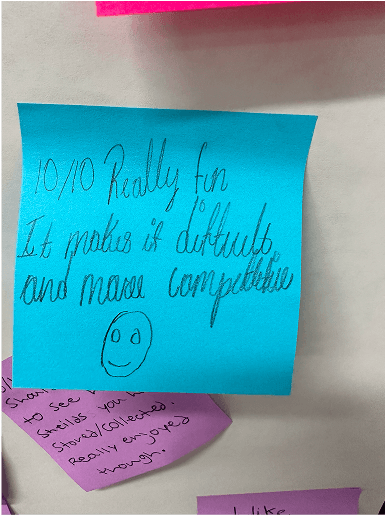 10/10 Really fun
It makes it difficult
and more competitive
to see
Sheilds you
Stored/collected.
Really enjoyed
though.
I like